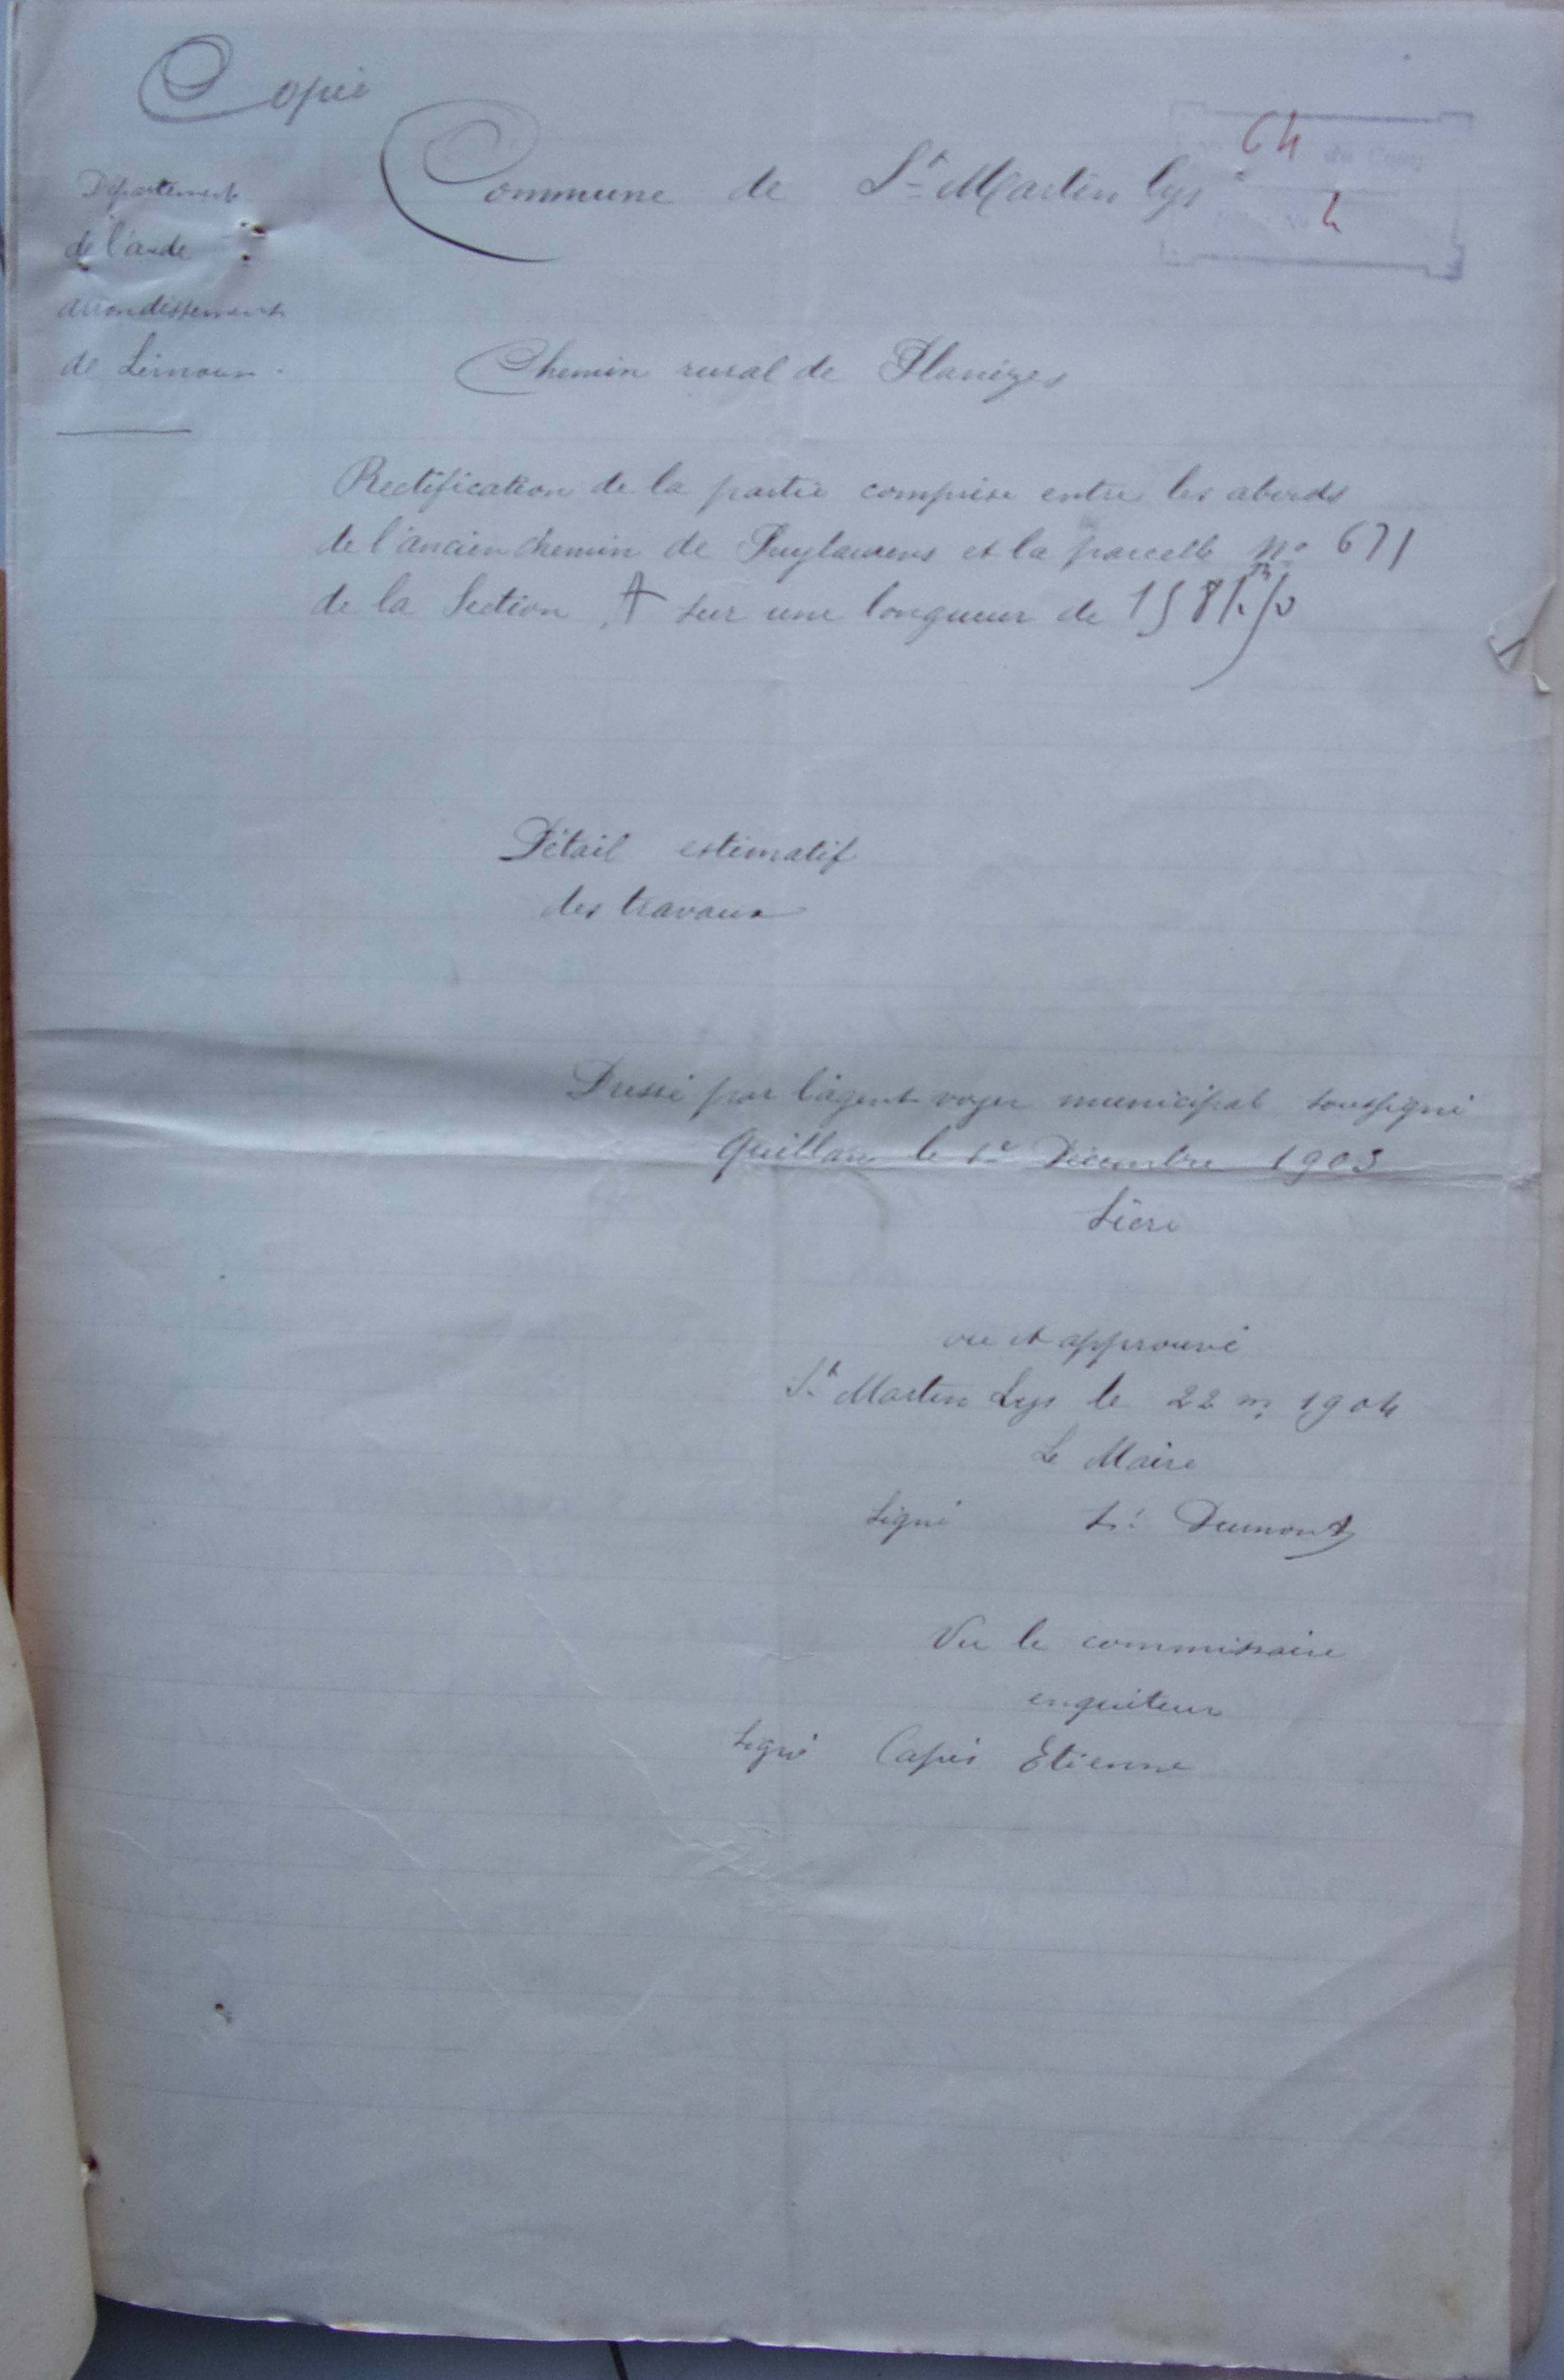 Copie
Département
de l'aude
arrondissement
de Limoux.
64 du
4
Commune de St Martin lys
Chemin rural de Planèzes
Rectification de la partie comprise entre les abords
de l'ancien chemin de Puylaurens et la parcelle No 671
de la Section A sur une longueur de
Détail estimatif
des travaux
Dressé par l'agent voyer municipal soussigné
Quillan le 1er Décembre 1903
vu et approuvé
St Martin Lys le 22 m. 1904
Le Maire
Signé Dumont
Vu le commissaire
enquêteur
Signé Capés Etienne